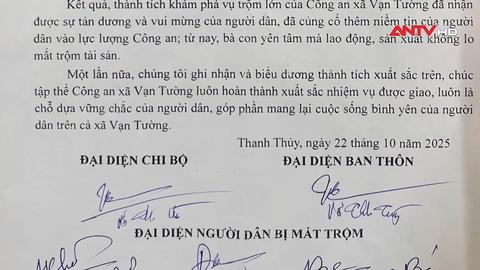 Kết quả, thành tích khám phá vụ trộm lớn của Công an xã Vạn Tường đã nhận
được sự tán dương và vui mừng của người dân, đã củng cố thêm niềm tin của người
dân vào lực lượng Công an; từ nay, bà con yên tâm mà lao động, sản xuất không lo
mất trộm tài sản.
Một lần nữa, chúng tôi ghi nhận và biểu dương thành tích xuất sắc trên, chúc
tập thể Công an xã Vạn Tường luôn hoàn thành xuất sắc nhiệm vụ được giao, luôn là
chỗ dựa vững chắc của người dân, góp phần mang lại cuộc sống bình yên của người
dân trên cả xã Vạn Tường.
Thanh Thủy, ngày 22 tháng 10 năm 2025
ĐẠI DIỆN CHI BỘ
ĐẠI DIỆN BAN THÔN
ĐẠI DIỆN NGƯỜI DÂN BỊ MẤT TRỘM
ANTV HD